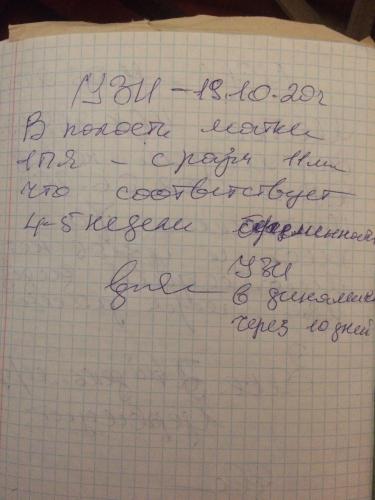 УЗИ - 19.10.20г
В полости матки
1 ПЯ - с разм 11мм
что соответствует
4-5 недели беременности
УЗИ
в динамике
через 10 дней